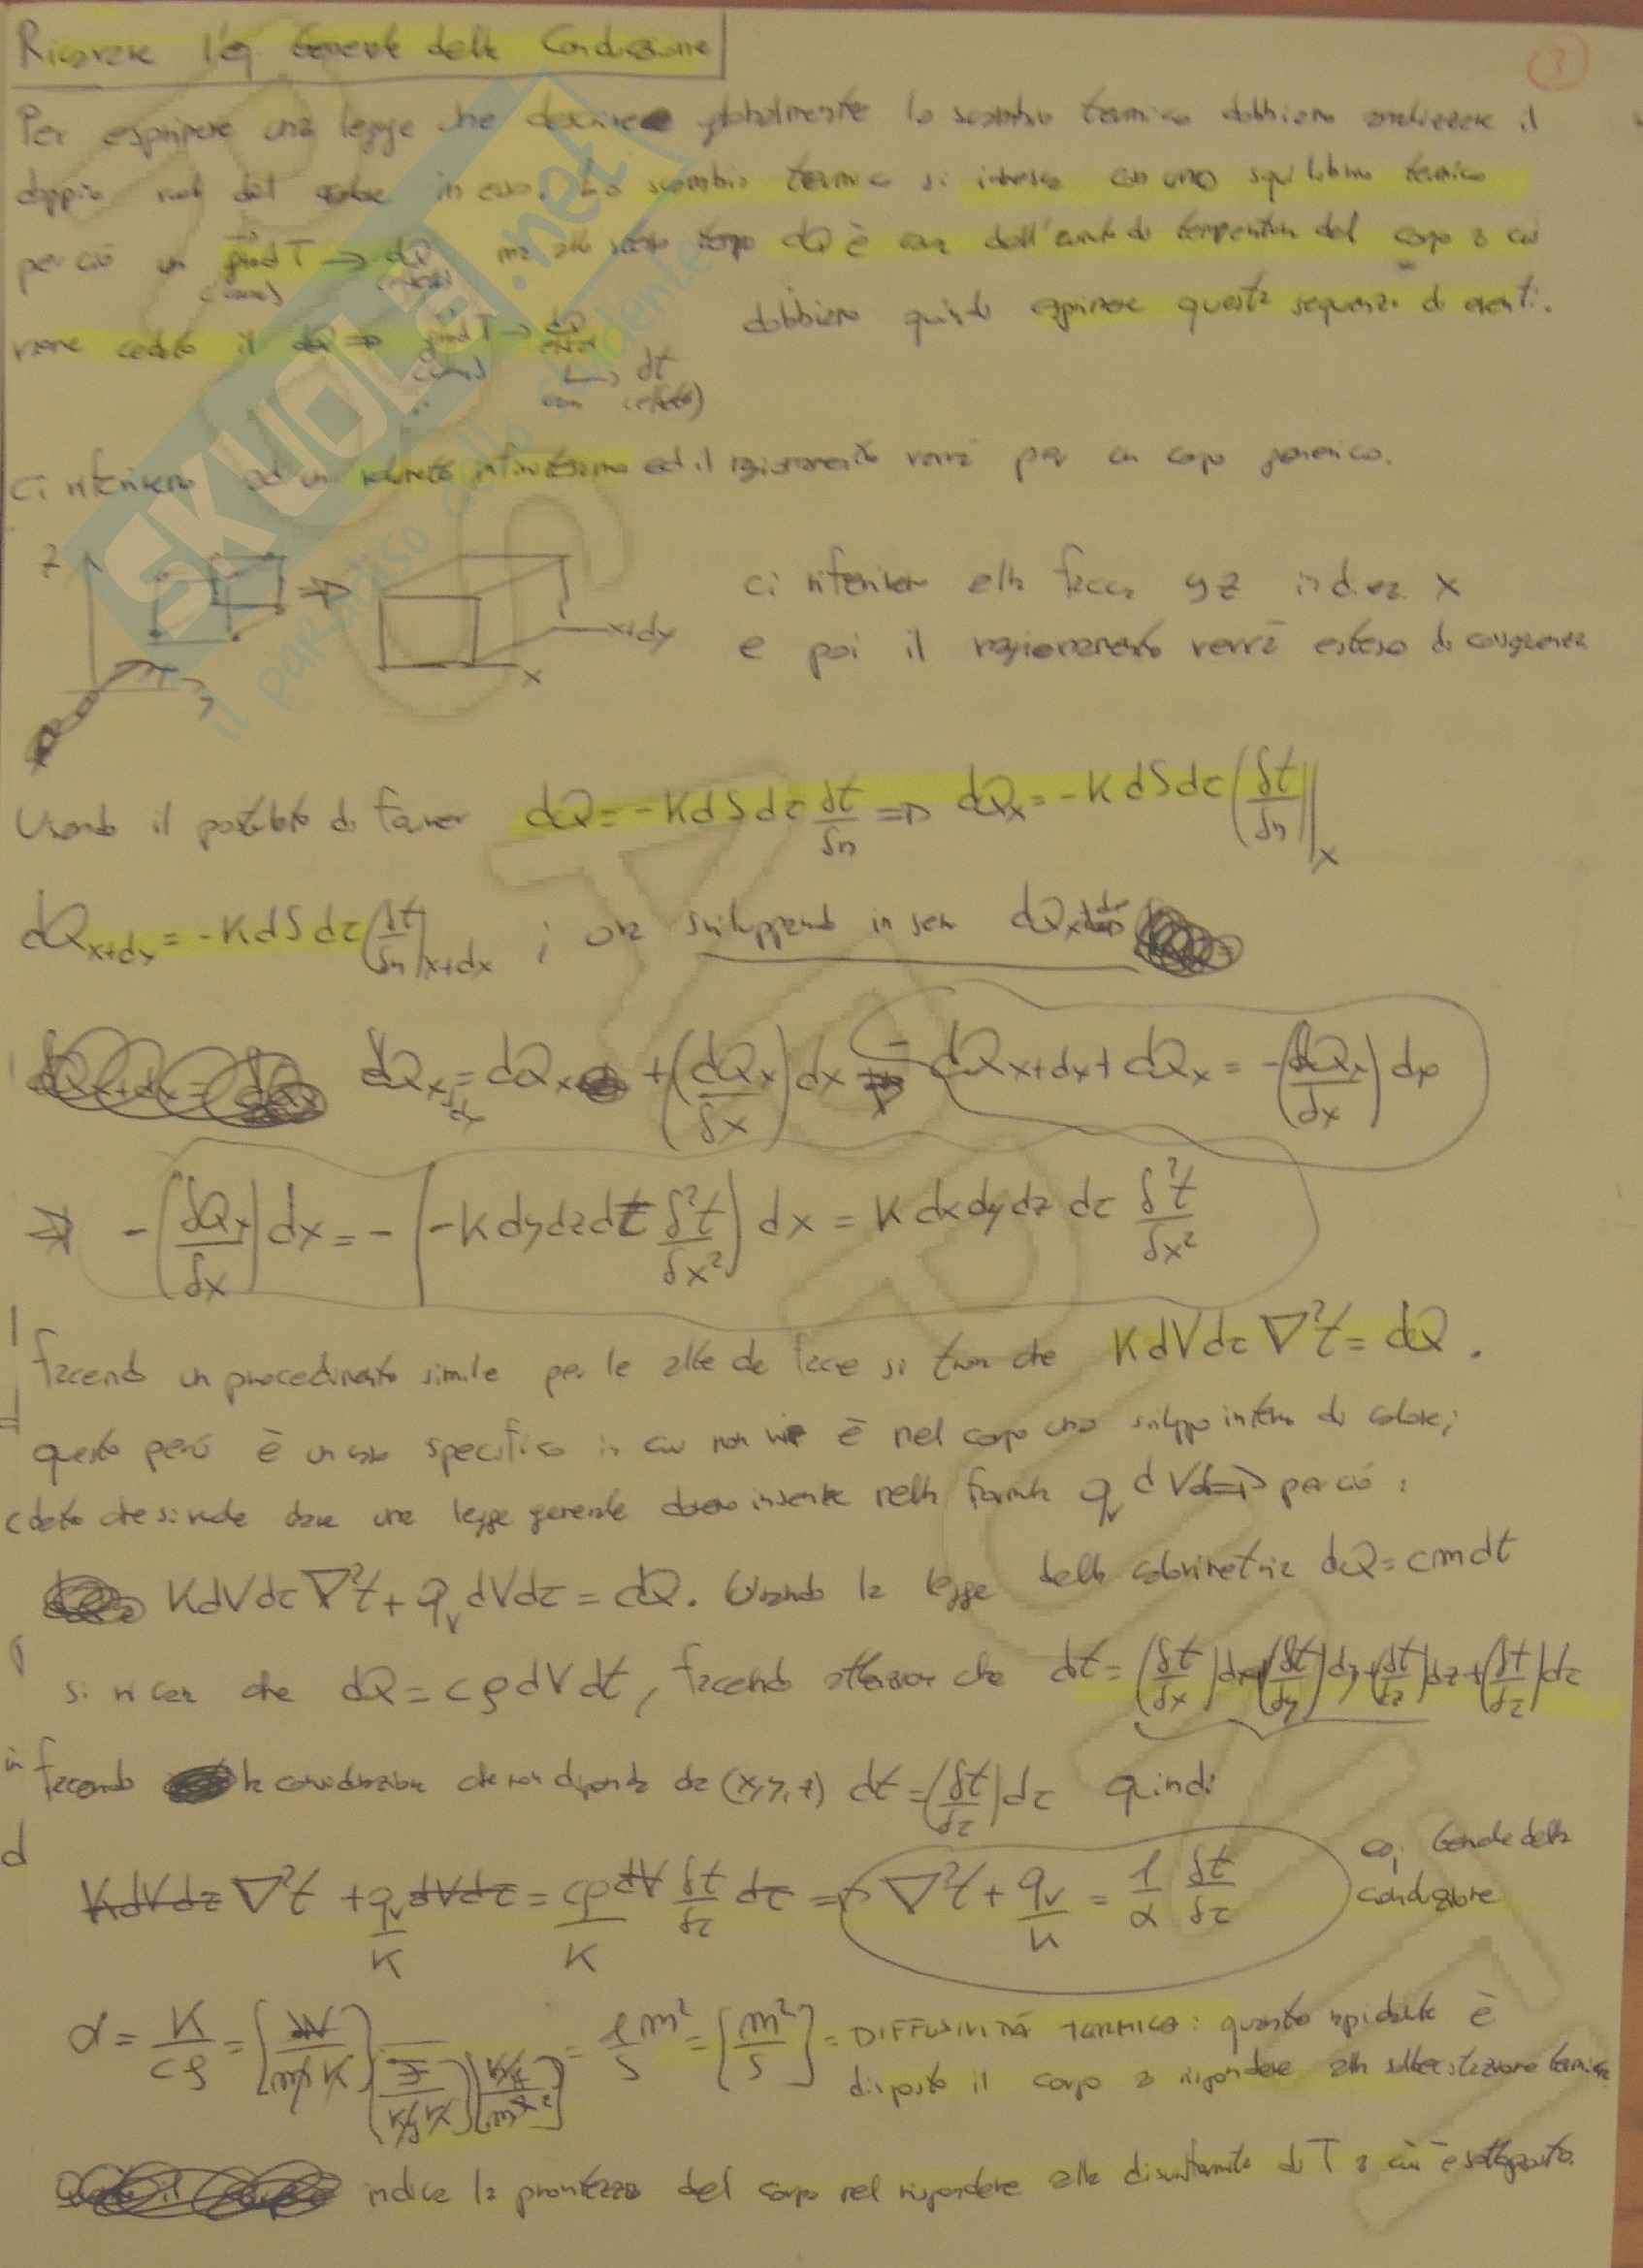 Ricavare l'eq. Generale della Conduzione
3
Per esprimere una legge che descrive globalmente lo scambio termico dobbiamo analizzare il
doppio in esso. Lo scambio termico si innesca con uno squilibrio termico
perciò un grad T → dQ ma allo stesso tempo dQ è causa dell'aumento di temperatura del corpo a cui
(causa) (effetto)
viene ceduto il dQ ⇒ grad T → dQ dobbiamo quindi esprimere questa sequenza di eventi.
(causa) effetto
↳ dt
(effetto)
Ci riferiamo ad un volumetto infinitesimo ed il ragionamento verrà per un corpo generico.
z
x
x+dy
ci riferiamo alla faccia yz in direz. x
e poi il ragionamento verrà esteso di conseguenza
Usando il postulato di Fourier dQ = -K dS dτ δt/δn ⇒ dQx = -K dS dτ (δt/δn)|x
dQx+dx = -K dS dτ (δt/δn)|x+dx ; ora sviluppando in serie dQx+dx
dQx+dx = dQx + (dQx/δx) dx ⇒ - dQx+dx + dQx = -(δQx/dx) dx
⇒ -(δQx/δx) dx = -(-K dy dz dτ δ²t/δx²) dx = K dx dy dz dτ δ²t/δx²
facendo un procedimento simile per le altre due facce si trova che K dV dτ ∇²t = dQ.
questo però è un caso specifico in cui non vi è nel corpo uno sviluppo interno di calore;
dato che si vuole dare una legge generale dovremo inserire nella formula qv dVdτ ⇒ perciò:
K dV dτ ∇²t + qv dV dτ = dQ. Usando la legge della calorimetria dQ = cmdt
si ricava che dQ = cρ dV dt, facendo attenzione che dt = (δt/dx)dx+(δt/dy)dy+(δt/δz)dz+(δt/δτ)dτ
facendo la considerazione che non dipende da (x,y,z) dt = (δt/δτ)dτ quindi
K dV dτ ∇²t + qv/K dV dτ = cρ/K dV δt/δτ dτ ⇒ ∇²t + qv/K = 1/α δt/δτ eq. Generale della
conduzione
α = K/cρ = [W/m K] [J/kg K][kg/m³] = 1/s m² = [m²/s] = DIFFUSIVITÁ TERMICA: quanto rapidamente è
disposto il corpo a rispondere alla sollecitazione termica
indica la prontezza del corpo nel rispondere alla disuniformità di T a cui è sottoposto.
SKUOLA.net
il paradiso dello studente